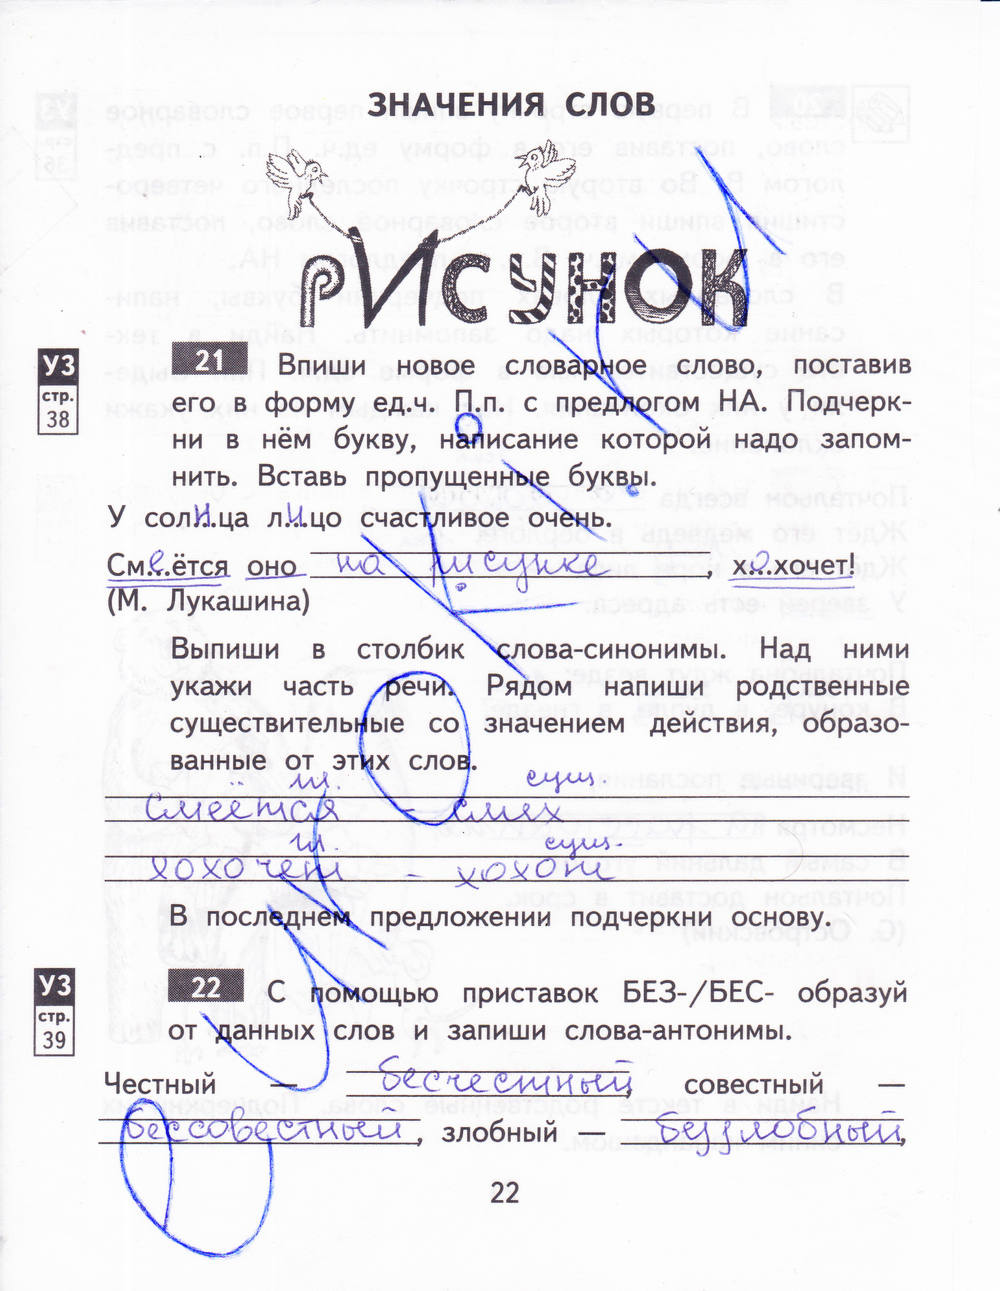 ЗНАЧЕНИЯ СЛОВ
РИСУНОК
УЗ
стр.
38
21 Впиши новое словарное слово, поставив
его в форму ед.ч. П.п. с предлогом НА. Подчерк-
ни в нём букву, написание которой надо запом-
нить. Вставь пропущенные буквы.
У солн.ца лицо счастливое очень.
Смеётся оно на рисунке, хохочет!
(М. Лукашина)
Выпиши в столбик слова-синонимы. Над ними
укажи часть речи. Рядом напиши родственные
существительные со значением действия, образо-
ванные от этих слов.
гл. сущ
смеётся смех
гл. сущ.
хохочет – хохот
В последнем предложении подчеркни основу.
УЗ
стр.
39
22 С помощью приставок БЕЗ-/БЕС- образуй
от данных слов и запиши слова-антонимы.
Честный — бесчестный, совестный —
бессовестный, злобный — беззлобный,
22